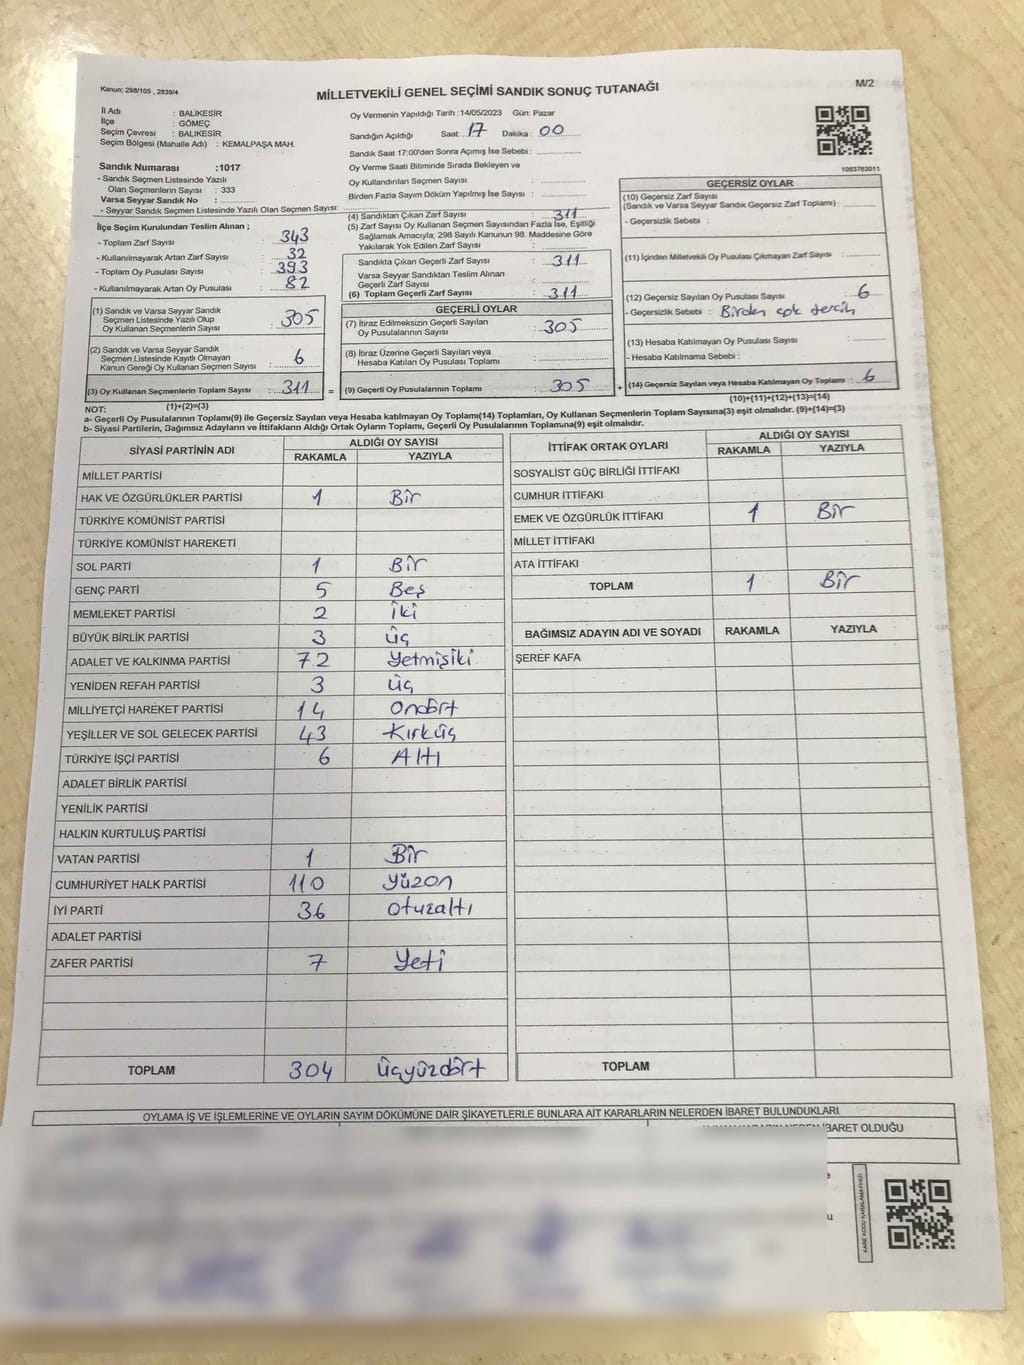 Kanun; 298/105 , 2839/4
MİLLETVEKİLİ GENEL SEÇİMİ SANDIK SONUÇ TUTANAĞI
M/2
İl Adı : BALIKESİR
İlçe : GÖMEÇ
Seçim Çevresi : BALIKESİR
Seçim Bölgesi (Mahalle Adı) : KEMALPAŞA MAH.
Sandık Numarası :1017
- Sandık Seçmen Listesinde Yazılı
Olan Seçmenlerin Sayısı : 333
Varsa Seyyar Sandık No :
- Seyyar Sandık Seçmen Listesinde Yazılı Olan Seçmen Sayısı:
İlçe Seçim Kurulundan Teslim Alınan ;
- Toplam Zarf Sayısı : 343
- Kullanılmayarak Artan Zarf Sayısı : 32
- Toplam Oy Pusulası Sayısı : 393
- Kullanılmayarak Artan Oy Pusulası : 82
(1) Sandık ve Varsa Seyyar Sandık
Seçmen Listesinde Yazılı Olup
Oy Kullanan Seçmenlerin Sayısı : 305
(2) Sandık ve Varsa Seyyar Sandık
Seçmen Listesinde Kayıtlı Olmayan
Kanun Gereği Oy Kullanan Seçmen Sayısı : 6
(3) Oy Kullanan Seçmenlerin Toplam Sayısı : 311 =
(1)+(2)=(3)
Oy Vermenin Yapıldığı Tarih :14/05/2023 Gün: Pazar
Sandığın Açıldığı Saat: 17 Dakika : 00
Sandık Saat 17:00'den Sonra Açımış İse Sebebi :
Oy Verme Saati Bitiminde Sırada Bekleyen ve
Oy Kullandırılan Seçmen Sayısı :
Birden Fazla Sayım Döküm Yapılmış İse Sayısı :
(4) Sandıktan Çıkan Zarf Sayısı : 311
(5) Zarf Sayısı Oy Kullanan Seçmen Sayısından Fazla İse, Eşitliği
Sağlamak Amacıyla; 298 Sayılı Kanunun 98. Maddesine Göre
Yakılarak Yok Edilen Zarf Sayısı :
Sandıkta Çıkan Geçerli Zarf Sayısı : 311
Varsa Seyyar Sandıktan Teslim Alınan
Geçerli Zarf Sayısı :
(6) Toplam Geçerli Zarf Sayısı : 311
GEÇERLİ OYLAR
(7) İtiraz Edilmeksizin Geçerli Sayılan
Oy Pusulalarının Sayısı : 305
(8) İtiraz Üzerine Geçerli Sayılan veya
Hesaba Katılan Oy Pusulası Toplamı :
(9) Geçerli Oy Pusulalarının Toplamı : 305 +
1083763011
GEÇERSİZ OYLAR
(10) Geçersiz Zarf Sayısı
(Sandık ve Varsa Seyyar Sandık Geçersiz Zarf Toplamı) :
- Geçersizlik Sebebi :
(11) İçinden Milletvekili Oy Pusulası Çıkmayan Zarf Sayısı :
(12) Geçersiz Sayılan Oy Pusulası Sayısı : 6
- Geçersizlik Sebebi : Birden çok tercih
(13) Hesaba Katılmayan Oy Pusulası Sayısı :
- Hesaba Katılmama Sebebi :
(14) Geçersiz Sayılan veya Hesaba Katılmayan Oy Toplamı : 6
(10)+(11)+(12)+(13)=(14)
NOT:
a- Geçerli Oy Pusulalarının Toplamı(9) ile Geçersiz Sayılan veya Hesaba katılmayan Oy Toplamı(14) Toplamları, Oy Kullanan Seçmenlerin Toplam Sayısına(3) eşit olmalıdır. (9)+(14)=(3)
b- Siyasi Partilerin, Bağımsız Adayların ve İttifakların Aldığı Ortak Oyların Toplamı, Geçerli Oy Pusulalarının Toplamına(9) eşit olmalıdır.
SİYASİ PARTİNİN ADI ALDIĞI OY SAYISI
RAKAMLA YAZIYLA
MİLLET PARTİSİ
HAK VE ÖZGÜRLÜKLER PARTİSİ 1 Bir
TÜRKİYE KOMÜNİST PARTİSİ
TÜRKİYE KOMÜNİST HAREKETİ
SOL PARTİ 1 Bir
GENÇ PARTİ 5 Beş
MEMLEKET PARTİSİ 2 İki
BÜYÜK BİRLİK PARTİSİ 3 üç
ADALET VE KALKINMA PARTİSİ 72 Yetmişiki
YENİDEN REFAH PARTİSİ 3 üç
MİLLİYETÇİ HAREKET PARTİSİ 14 Ondört
YEŞİLLER VE SOL GELECEK PARTİSİ 43 Kırküç
TÜRKİYE İŞÇİ PARTİSİ 6 Altı
ADALET BİRLİK PARTİSİ
YENİLİK PARTİSİ
HALKIN KURTULUŞ PARTİSİ
VATAN PARTİSİ 1 Bir
CUMHURİYET HALK PARTİSİ 110 Yüzon
İYİ PARTİ 36 otuzaltı
ADALET PARTİSİ
ZAFER PARTİSİ 7 Yeti
TOPLAM 304 üçyüzdört
İTTİFAK ORTAK OYLARI ALDIĞI OY SAYISI
RAKAMLA YAZIYLA
SOSYALİST GÜÇ BİRLİĞİ İTTİFAKI
CUMHUR İTTİFAKI
EMEK VE ÖZGÜRLÜK İTTİFAKI 1 Bir
MİLLET İTTİFAKI
ATA İTTİFAKI
TOPLAM 1 Bir
BAĞIMSIZ ADAYIN ADI VE SOYADI RAKAMLA YAZIYLA
ŞEREF KAFA
TOPLAM
OYLAMA İŞ VE İŞLEMLERİNE VE OYLARIN SAYIM DÖKÜMÜNE DAİR ŞİKAYETLERLE BUNLARA AİT KARARLARIN NELERDEN İBARET BULUNDUKLARI
İBARET OLDUĞU
KARE KODU KARALAMAYINIZ!